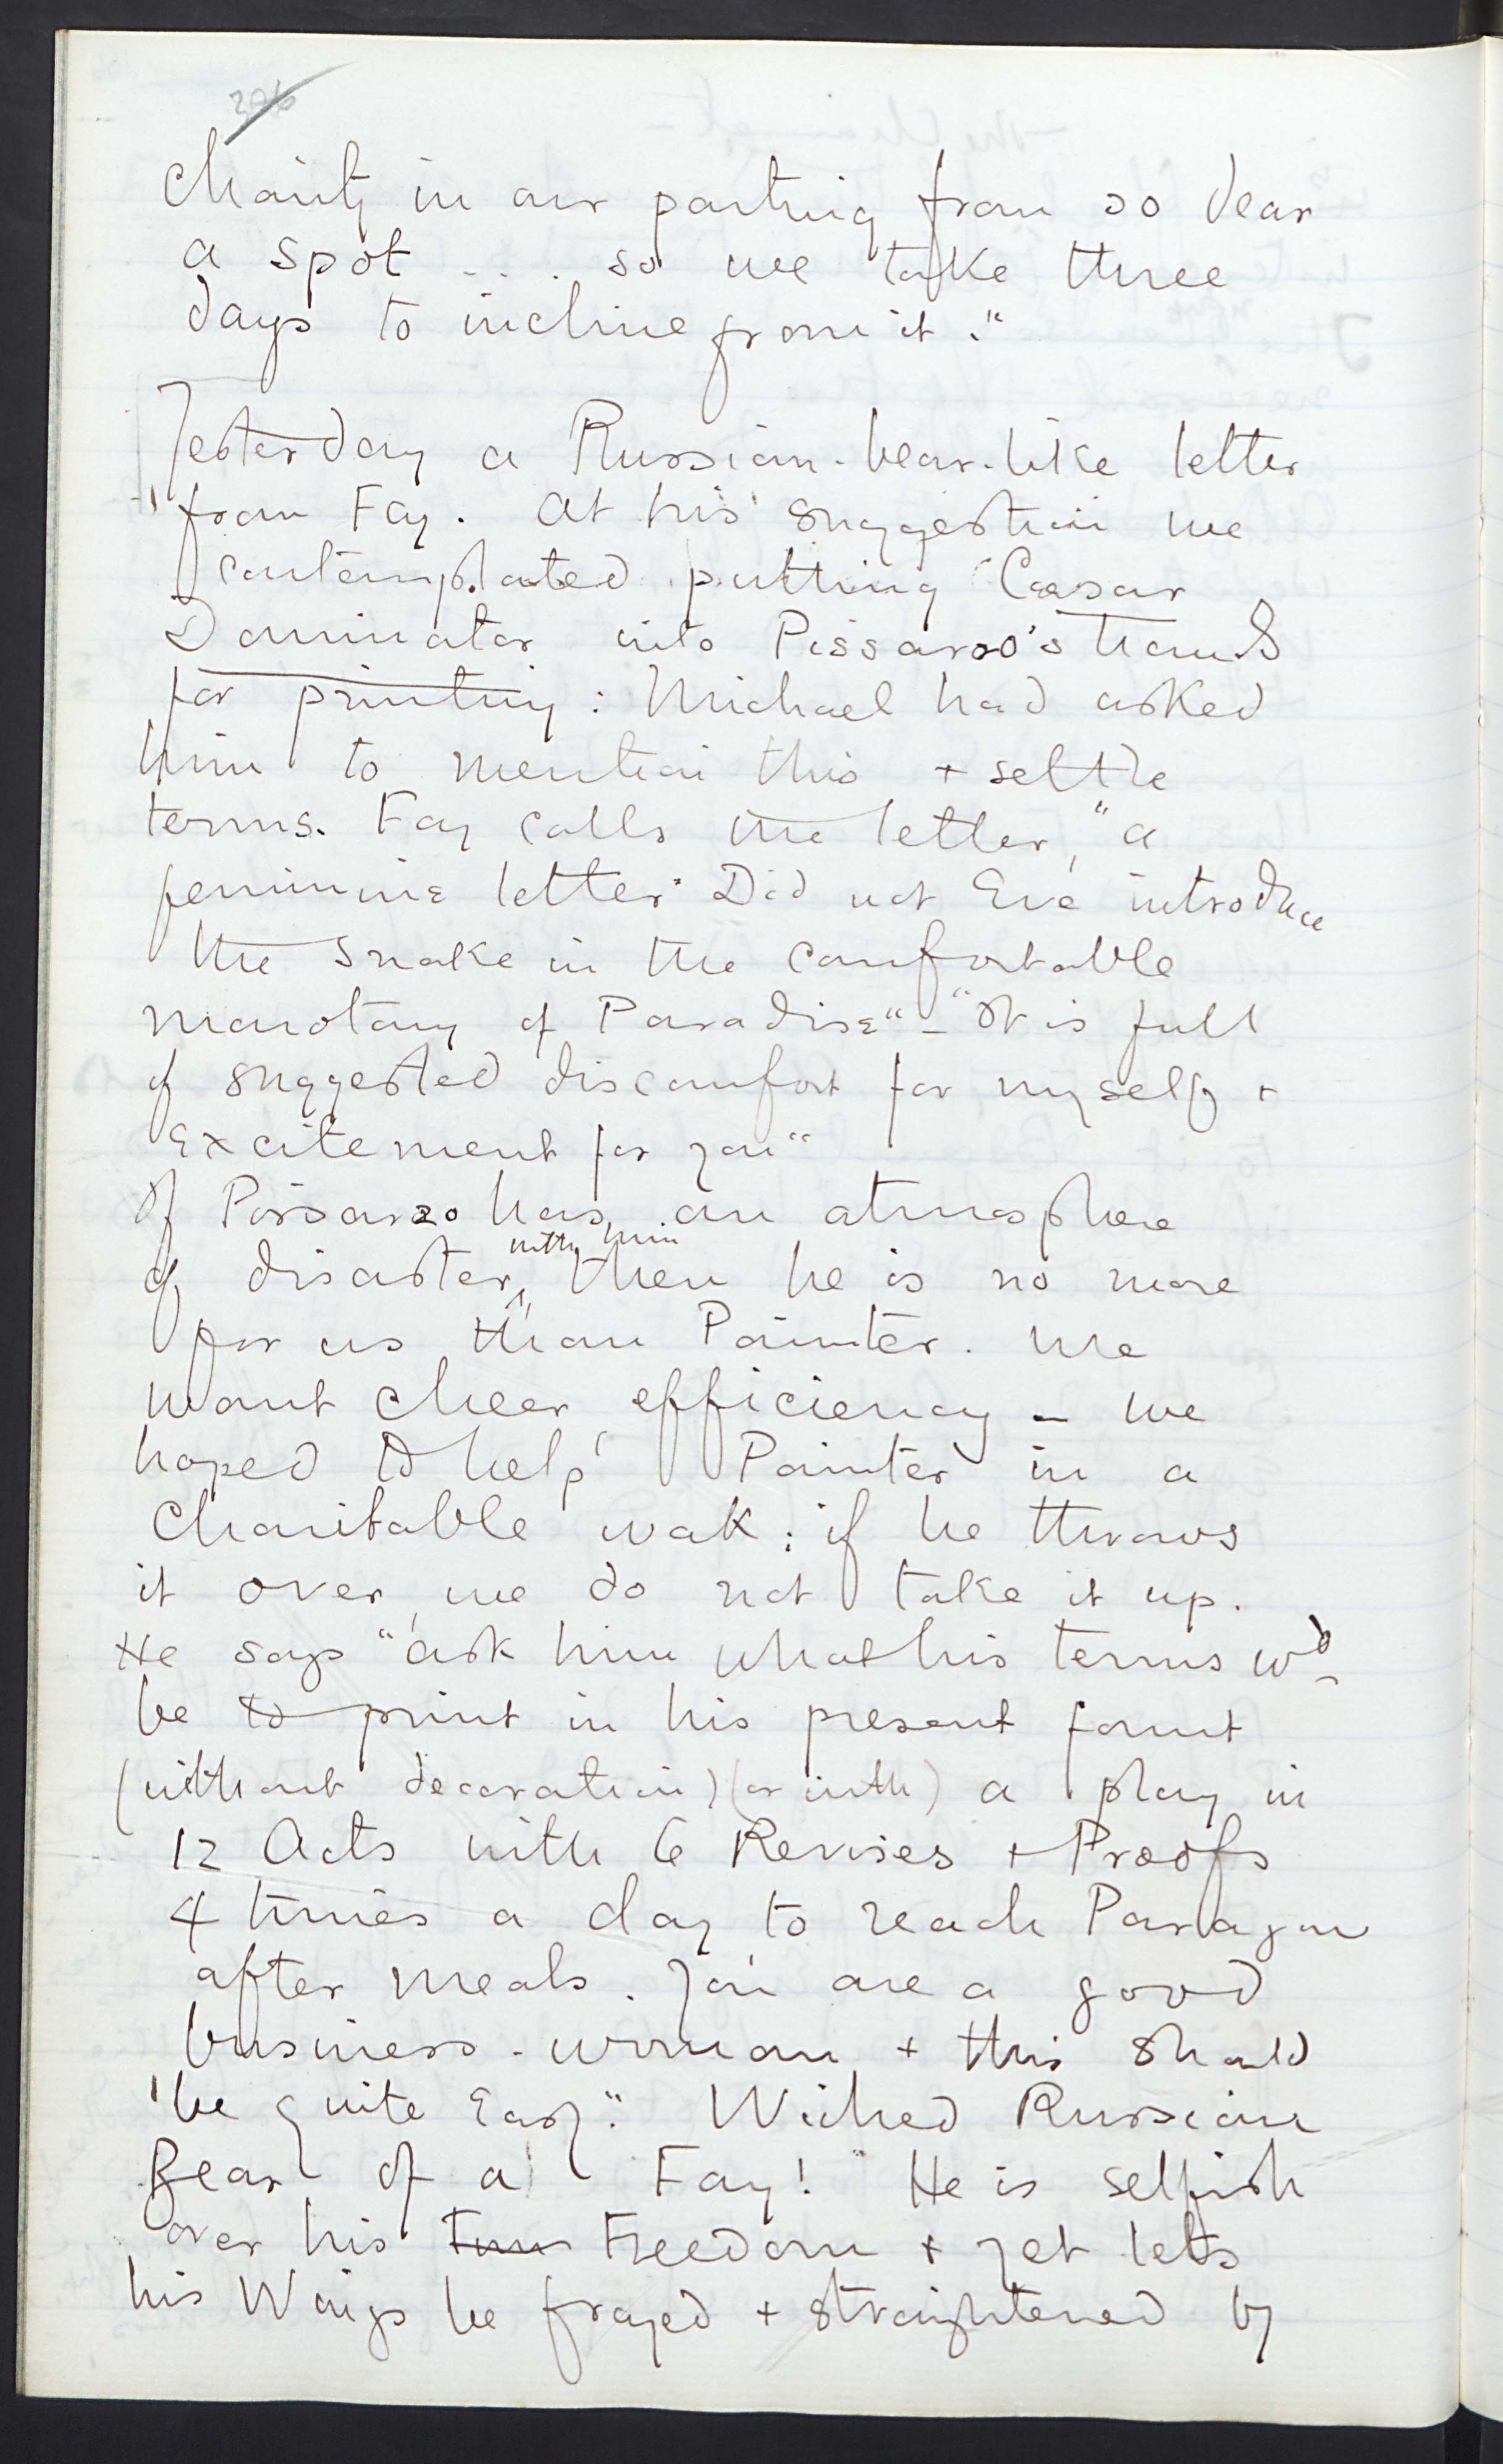 Charity in our parting from so dear
a spot . . . . so we take three
days to incline from it."
Yesterday a Russian-bear-like letter
from Fay. At his suggestion we
contemplated putting Caesar
Dominator into Pissarro's hands
for printing: Michael had asked
him to mention this + settle
terms. Fay calls the letter, "a
feminine letter" Did not Eve introduce
the snake in the comfortable
monotony of Paradise" - "It is full
of suggested discomfort for myself +
Excitement for you"
If Pissarro has an atmosphere
of disaster, with him then he is no more
for us than Painter. We
want cheer, efficiency - We
hoped to help Painter in a
Charitable wak: if he throws
it over, we do not take it up.
He says "ask him what his terms wd
be to print in his present fount
(without decoration) (or with) a play in
12 Acts with 6 Revises + Proofs
4 times a day to reach Paragon
after meals. You are a good
business-woman + this should
be quite Easy." Wicked Russian
Bear of a Fay! He is selfish
over his Freedom + yet lets
his Wings be frayed + straightened by